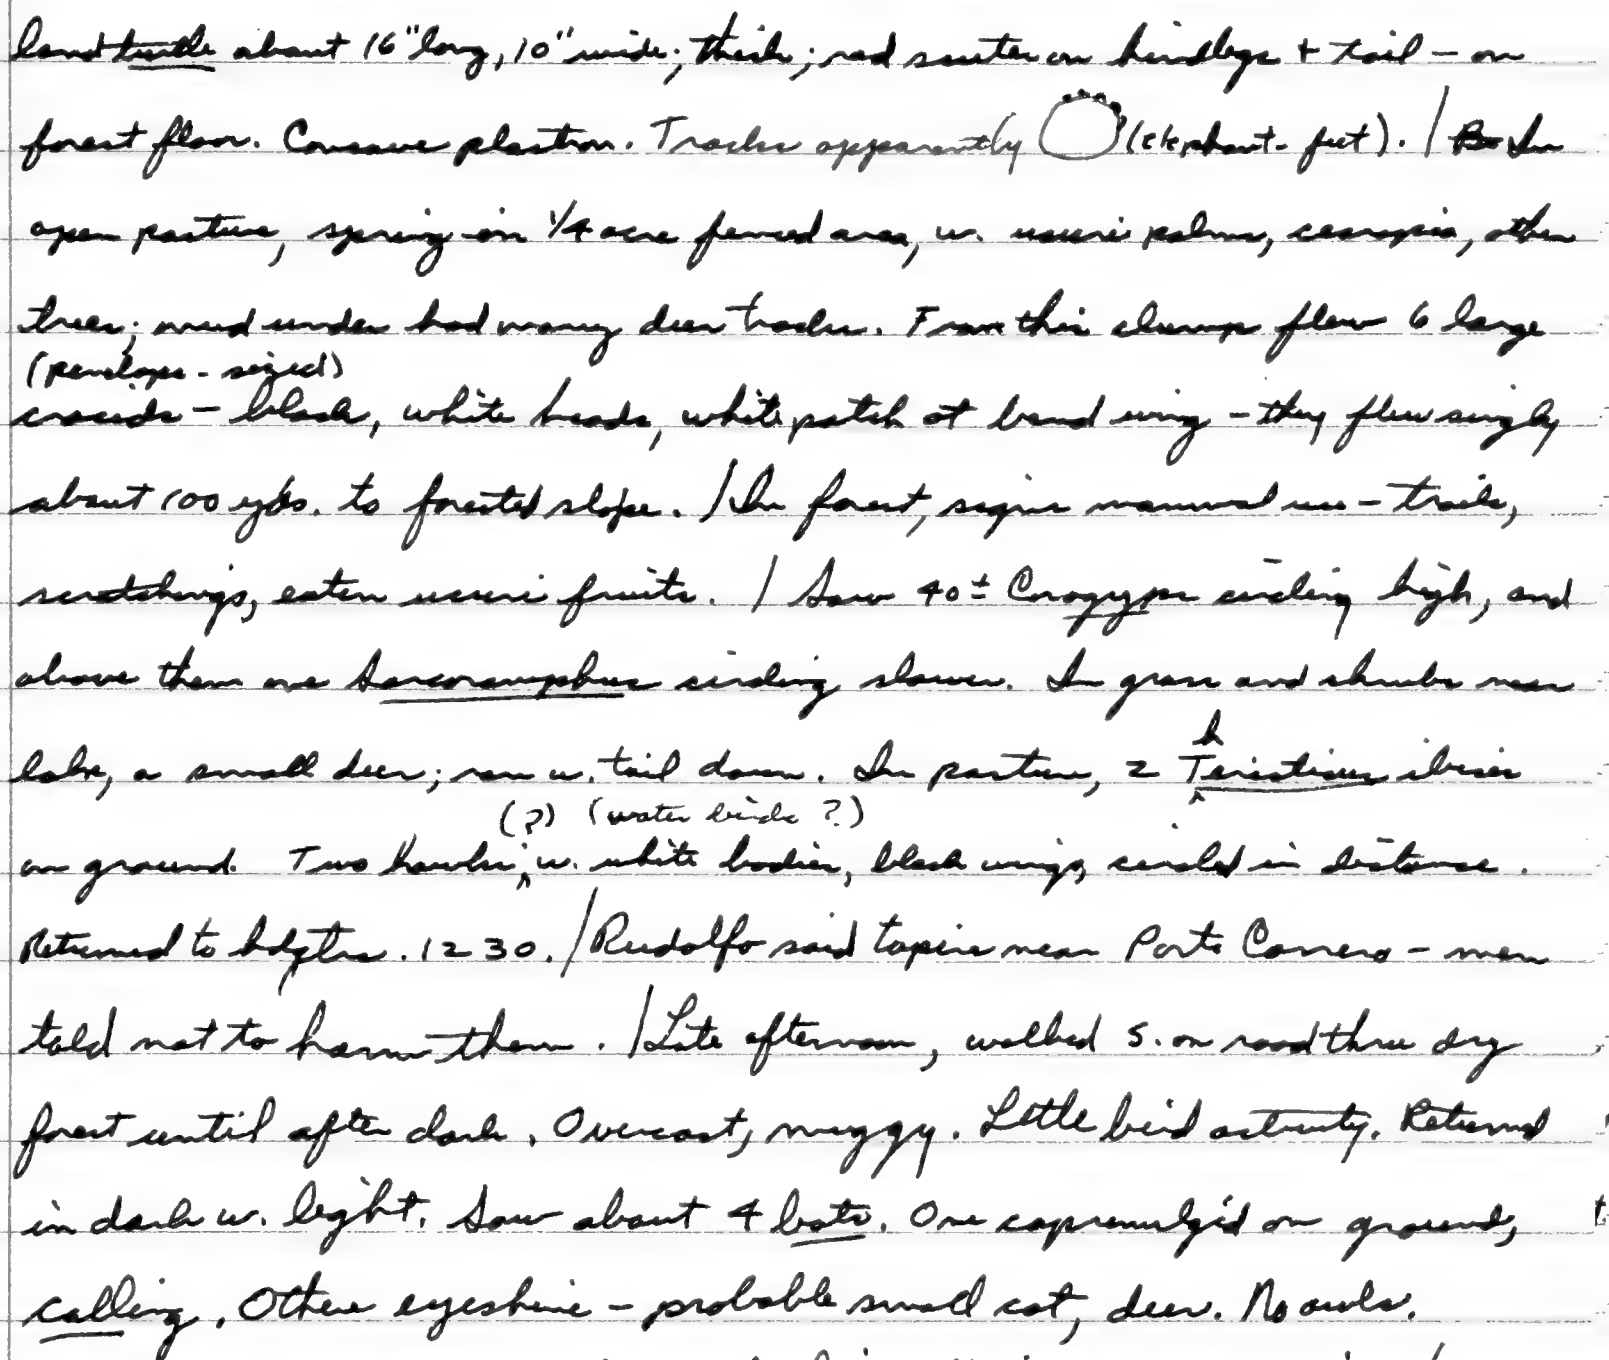 land turtle about 16" long, 10" wide; thick; red scutes on hindlegs + tail – on
forest floor. Concave plastron. Tracks apparently (elephant-feet). / In
open pasture, spring in 1/4 acre fenced area, w. ucuri palms, cecropia, other
trees; mud under had many deer tracks. From this clump flew 6 large
(penelope-sized)
cracids – black, white heads, white patch at bend wing – they flew singly
about 100 yds. to forested slope. / In forest, signs mammal use – trails,
scratchings, eaten ucuri fruits. / Saw 40± Coragyps circling high, and
above them one Sarcoramphus circling slower. In grass and shrubs near
lake, a small deer; ran w. tail down. In pasture, 2 Theristicus ibises
(?) (water birds ?)
on ground. Two hawks, w. white bodies, black wings, circled in distance.
Returned to hdqtrs. 1230. / Rudolfo said tapirs near Porto Carrero – men
told not to harm them. / Late afternoon, walked S. on road thru dry
forest until after dark. Overcast, muggy. Little bird activity. Returned
in dark w. light. Saw about 4 bats. One caprimulgid on ground,
calling. Other eyeshine – probable small cat, deer. No owls.